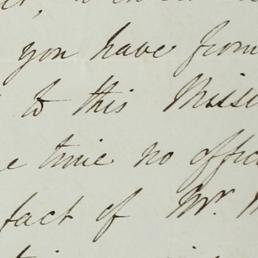 you have from
to this Missi
time no offic
fact of Mr.